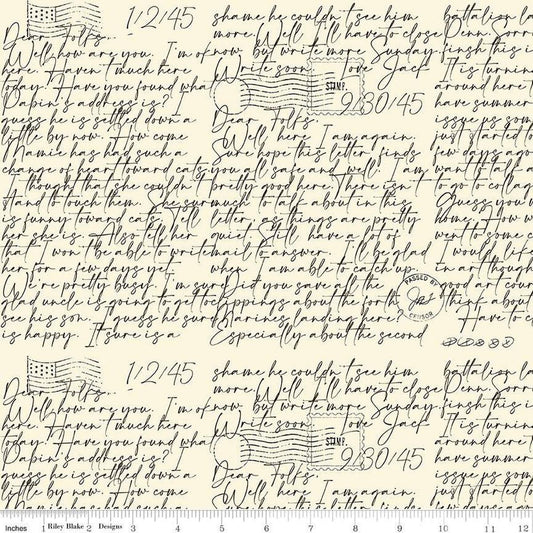 1/2/45
Dear Folks..
Well how are you. I'm of
here. Haven't much here
today. Have you found what
Papin's address is? I
guess he is settled down a
little by now. How come
Mamie has had such a
change of heart toward cats
I thought that she couldn't
stand to touch them. She sure
is funny toward cats. Tell
her she is. Also tell her
that I won't be able to write
her for a few days yet.
We're pretty busy. I'm sure
glad uncle is going to get to
see his son. I guess he sure
is happy. It sure is a
shame he couldn't see him
more. Well I'll have to close
now, but write more Sunday.
Write soon Love Jack
STAMP.
9/30/45
Dear Folks.
Well here I am again.
Sure hope this letter finds
you all safe and well. I am
pretty good here. There isn't
much to talk about in this
letter, as things are pretty
quiet. Still have a lot of
mail to answer. I'll be glad
when I am able to catch up.
Did you save all the
clippings about the forth
Marines landing here?
Especially about the second
PASSED BY
CENSOR
battalion la
Denn. Sorr
finsh this i
It is turnin
around here t
have summer
issue us som
just started to
few days ago
want to talk a
to go to collag
Guess you w
home. How w
went over
I would like
in art though
good art cour
think about
Have to c
1/2/45
Dear Folks..
Well how are you. I'm of
here. Haven't much here
today. Have you found what
Papin's address is? I
guess he is settled down a
little by now. How come
shame he couldn't see him
more. Well I'll have to close
now, but write more Sunday.
Write soon Love Jack
STAMP.
9/30/45
Dear Folks.
Well here I am again.
battalion la
Denn. Sorr
finsh this i
It is turnin
around here t
have summer
issue us som
just started to
few days ago
Inches 1 Riley Blake 2 Designs 3 4 5 6 7 8 9 10 11 12